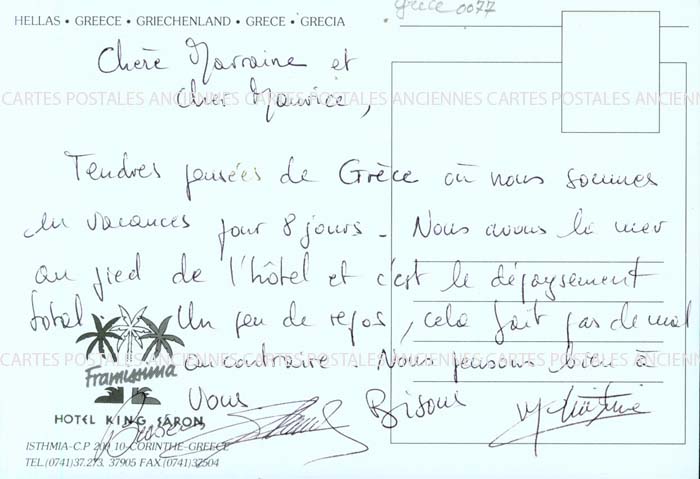 HELLAS • GREECE • GRIECHENLAND • GRECE • GRECIA
Grèce 0077
Chère Marraine et
Cher Maurice,
CARTES POSTALES ANCIENNES CARTES POSTALES ANCIEN
Tendres pensées de Grèce où nous sommes
en vacances pour 8 jours - Nous avons la mer
au pied de l'hôtel et c'est le dépaysement
total. Un peu de repos, cela fait pas de mal
CARTES POSTALES ANCIENNES CARTES POSTALES ANCIEN
au contraire. Nous pensons bien à
Vous Bisous
Framissima
HOTEL KING SARON
ISTHMIA-C.P 200 10-CORINTHE-GREECE
TEL.(0741)37.273, 37905 FAX.(0741)37504